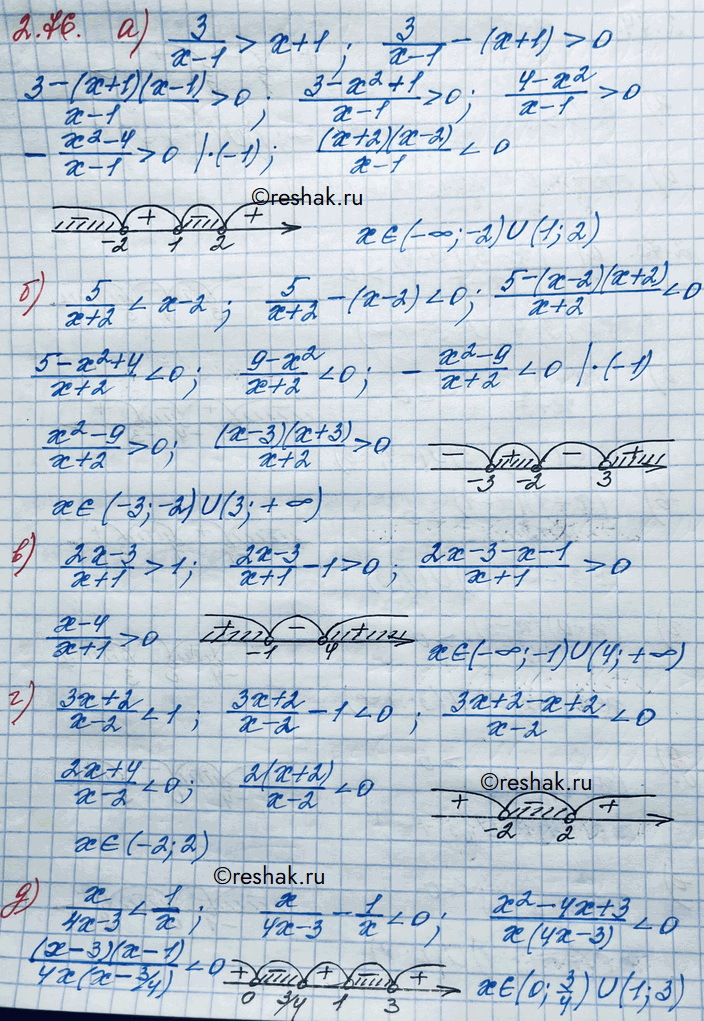 2.76. а) 3/(x-1) > x+1; 3/(x-1) - (x+1) > 0
(3-(x+1)(x-1))/(x-1) > 0; (3-x²+1)/(x-1) > 0; (4-x²)/(x-1) > 0
- (x²-4)/(x-1) > 0 |·(-1); ((x+2)(x-2))/(x-1) < 0
©reshak.ru
- + - +
-2 1 2
x∈(-∞;-2)∪(1;2)
б) 5/(x+2) < x-2; 5/(x+2) - (x-2) < 0; (5-(x-2)(x+2))/(x+2) < 0
(5-x²+4)/(x+2) < 0; (9-x²)/(x+2) < 0; - (x²-9)/(x+2) < 0 |·(-1)
(x²-9)/(x+2) > 0; ((x-3)(x+3))/(x+2) > 0
- + - +
-3 -2 3
x∈(-3;-2)∪(3;+∞)
в) (2x-3)/(x+1) > 1; (2x-3)/(x+1) - 1 > 0; (2x-3-x-1)/(x+1) > 0
(x-4)/(x+1) > 0
+ - +
-1 4
x∈(-∞;-1)∪(4;+∞)
г) (3x+2)/(x-2) < 1; (3x+2)/(x-2) - 1 < 0; (3x+2-x+2)/(x-2) < 0
(2x+4)/(x-2) < 0; 2(x+2)/(x-2) < 0
©reshak.ru
+ - +
-2 2
x∈(-2;2)
©reshak.ru
д) x/(4x-3) < 1/x; x/(4x-3) - 1/x < 0; (x²-4x+3)/(x(4x-3)) < 0
((x-3)(x-1))/(4x(x-3/4)) < 0
+ - + - +
0 3/4 1 3
x∈(0;3/4)∪(1;3)